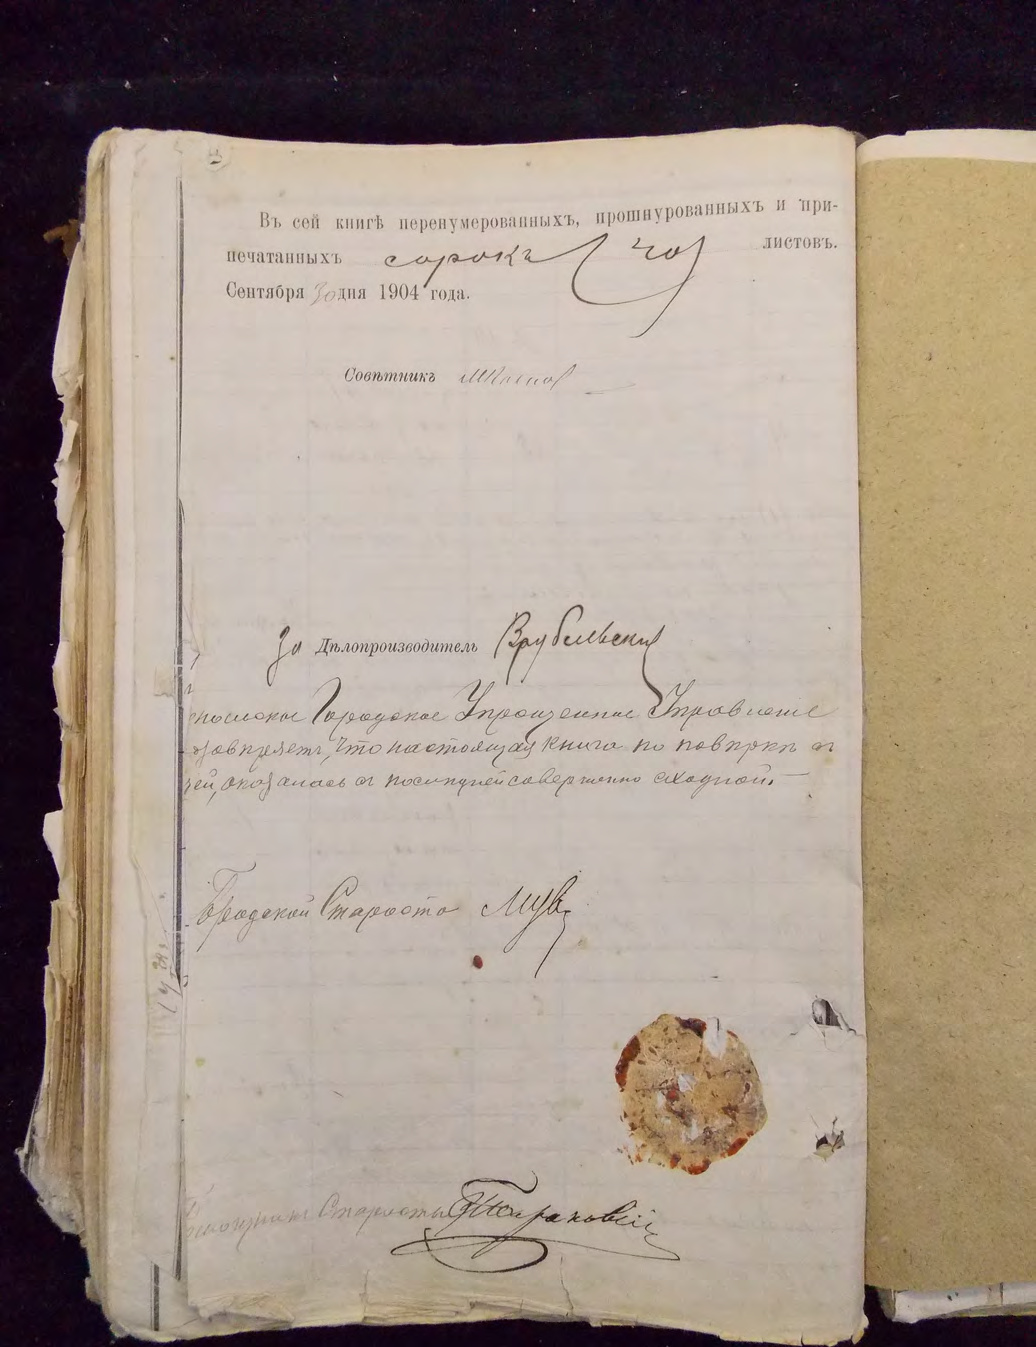 Въ сей книгѣ перенумерованныхъ, прошнурованныхъ и при-
печатанныхъ сорокъ (40) листовъ.
Сентября 30 дня 1904 года.
Совѣтникъ
За Дѣлопроизводитель Врубельскій
Городское Упрощенное Управленіе
что настоящая книга по повѣркѣ съ
ней, оказалась съ послѣдней совершенно сходной.
Городской Староста
Старосты